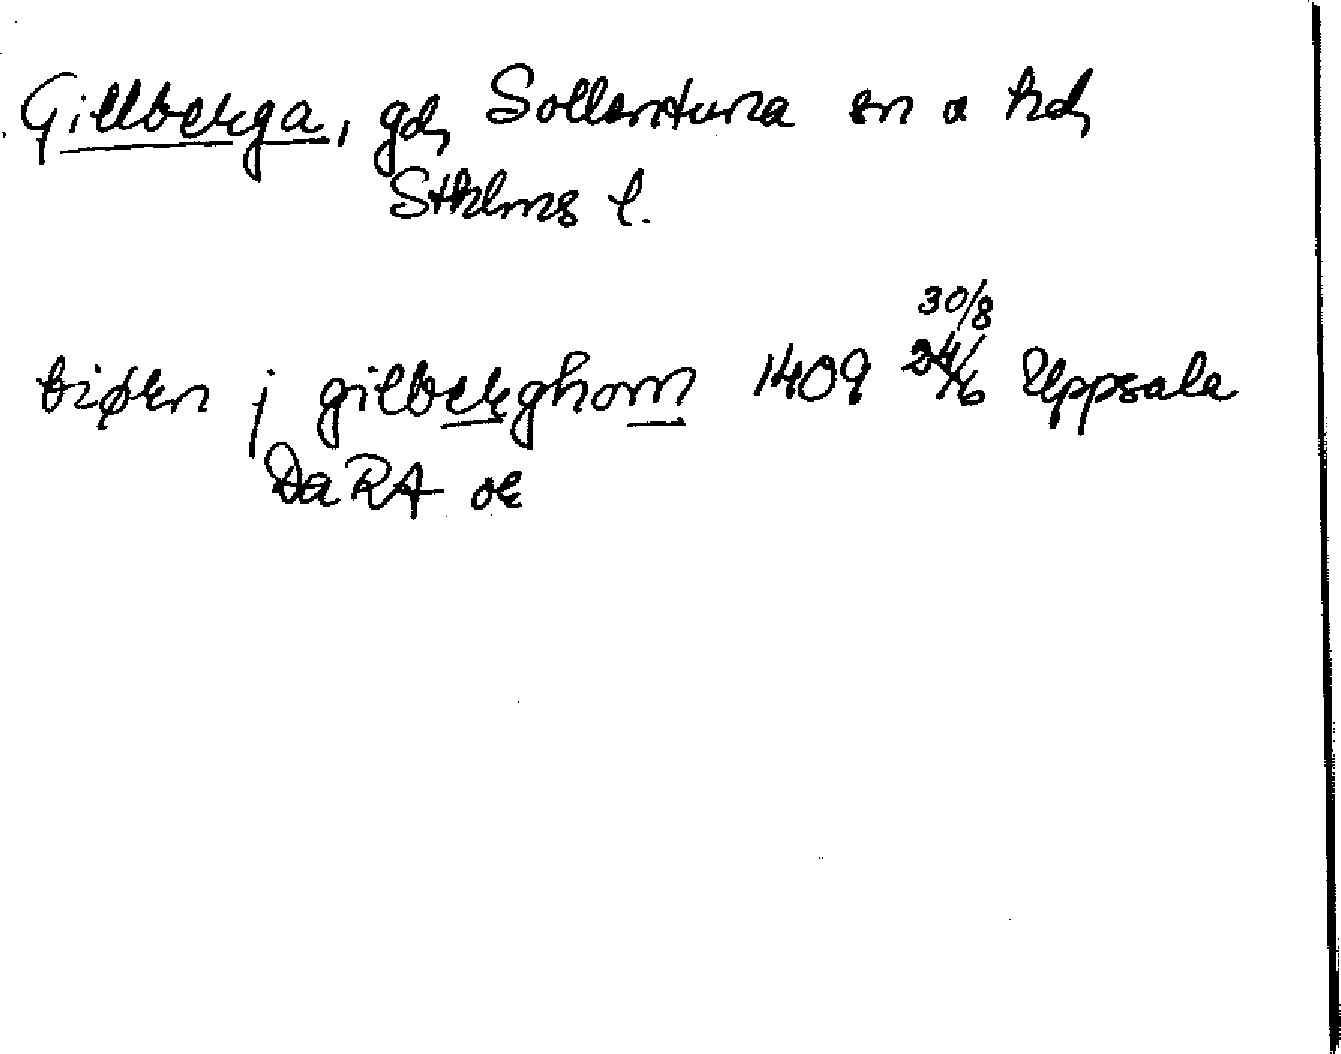 Gillberga, gd, Sollentuna sn o hd,
Sthlms l.
30/8
biørn j gilberghom 1409 24/6 Uppsala
DaRA oe